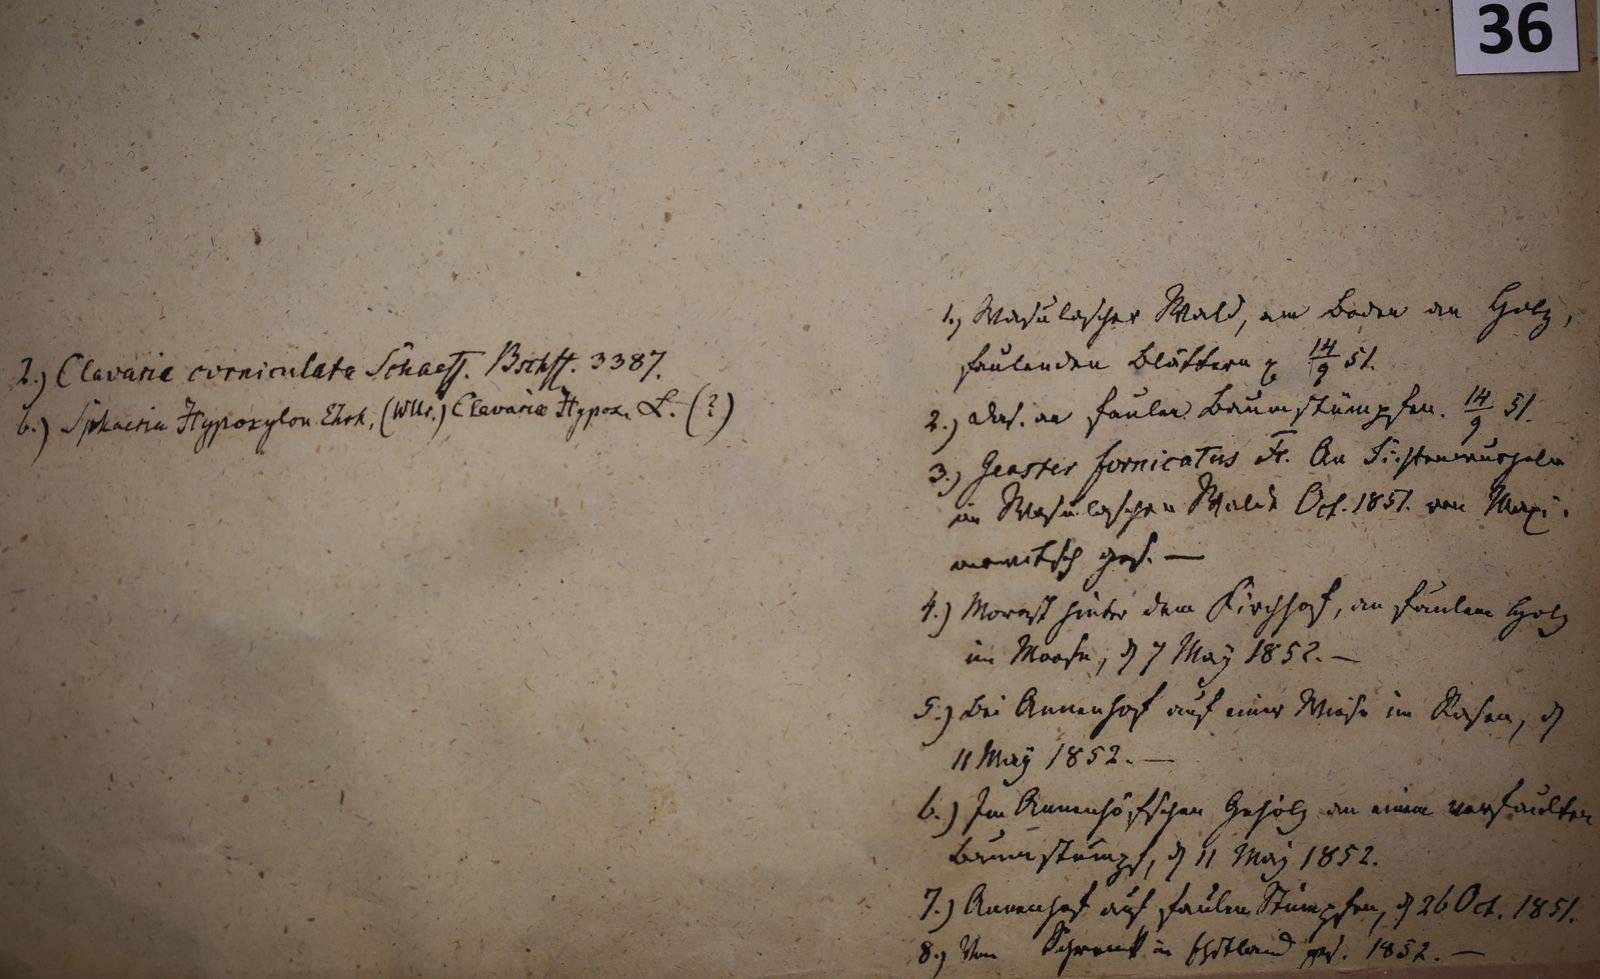 36
2.) Clavaria corniculata Schaeff. Bschff. 3387.
6.) Sphaeria Hypoxylon Ehrh. (Wllr.) Clavaria Hypox. L. (?)
1.) Wasulascher Wald, am Boden an Holz,
faulenden Blättern 14/9 51.
2.) Das. an faulen Baumstümpfen. 14/9 51.
3.) Geaster fornicatus Fr. An Fichtenwurzeln
im Wasulaschen Walde Oct. 1851. von Maxi-
mowitsch ges. —
4.) Morast hinter dem Kirchhof, an faulem Holz
im Moose, d 7 May 1852. —
5.) Bei Annenhof auf einer Wiese im Rasen, d
11 May 1852. —
6.) Im Annenhöfschen Gehölz an einem verfaulten
Baumstumpf, d 11 May 1852.
7.) Annenhof auf faulen Stümpfen, d 26 Oct. 1851.
8.) Von Schrenk in Ehstland ges. 1852. —